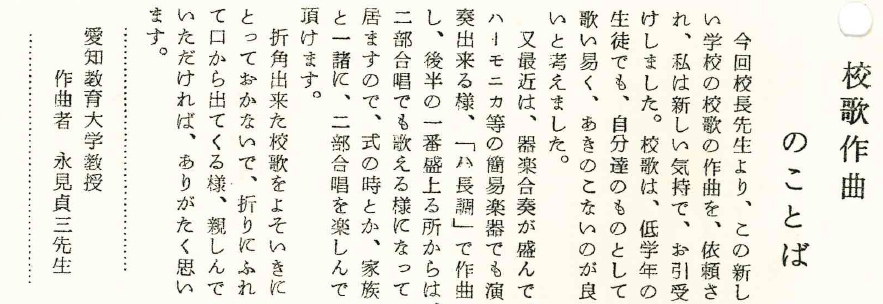 校歌作曲
のことば
今回校長先生より、この新し
い学校の校歌の作曲を、依頼さ
れ、私は新しい気持で、お引受
けしました。校歌は、低学年の
生徒でも、自分達のものとして
歌い易く、あきのこないのが良
いと考えました。
又最近は、器楽合奏が盛んで
ハーモニカ等の簡易楽器でも演
奏出来る様、「ハ長調」で作曲
し、後半の一番盛上る所からは、
二部合唱でも歌える様になって
居ますので、式の時とか、家族
と一諸に、二部合唱を楽しんで
頂けます。
折角出来た校歌をよそいきに
とっておかないで、折りにふれ
て口から出てくる様、親しんで
いただければ、ありがたく思い
ます。
愛知教育大学教授
作曲者 永見貞三先生